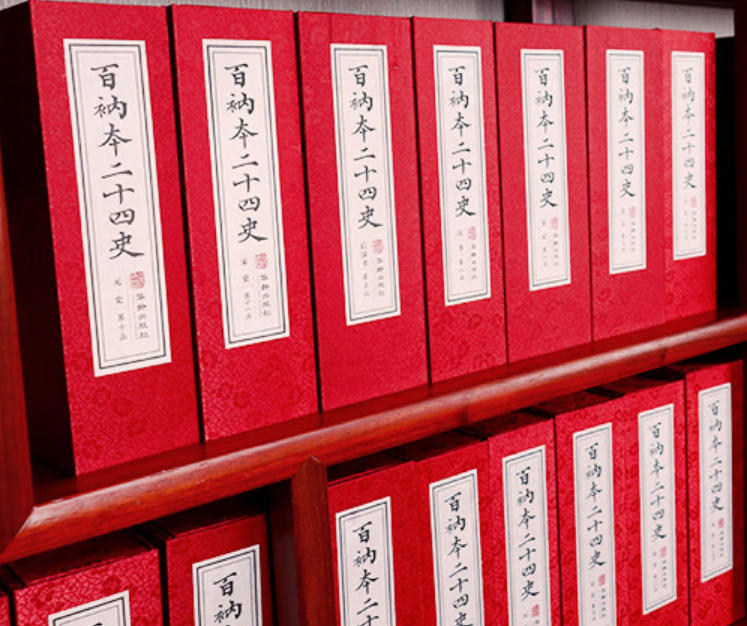 百衲本二十四史
元史 第十函
华龄出版社
百衲本二十四史
宋史 第十一函
华龄出版社
百衲本二十四史
华龄出版社
百衲本二十四史
华龄出版社
百衲本二十四史
百衲本二十四史
百衲本二十四史
百衲
百衲本二十
百衲本二十四史
百衲本二十四史
百衲本二十四史
百衲本二十四史
百衲本二十四史